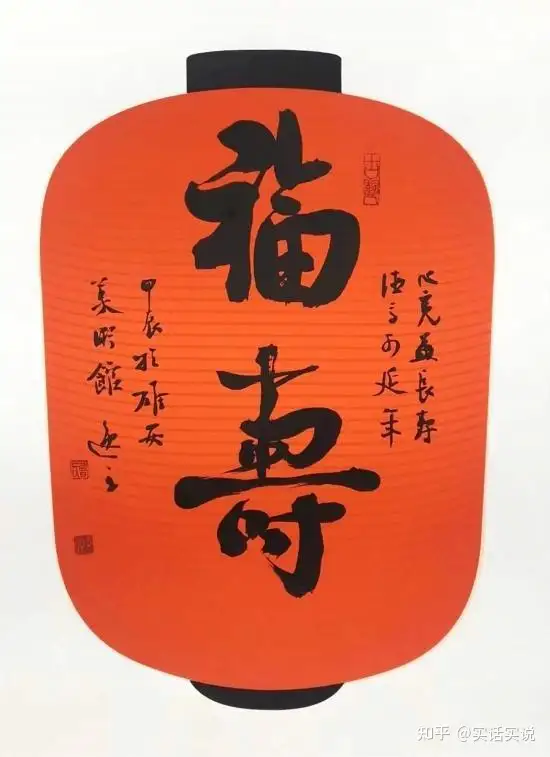 福壽
心宽益長寿
德高可延年
甲辰於雄安
館
知乎 @实话实说